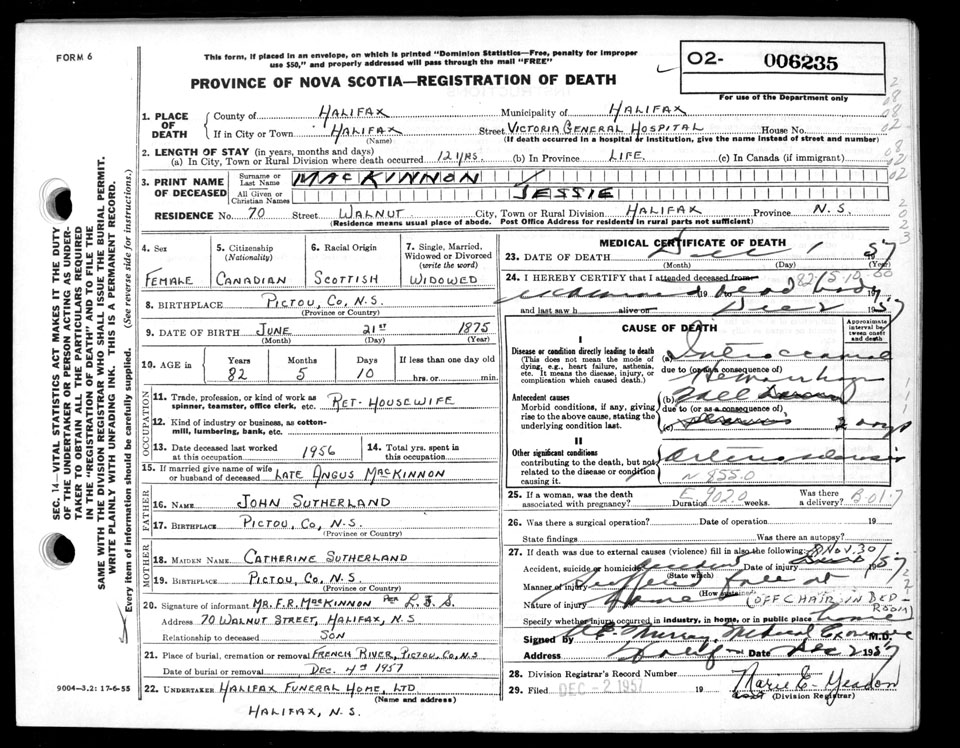 FORM 6
This form, if placed in an envelope, on which is printed "Dominion Statistics—Free, penalty for improper
use $50," and properly addressed will pass through the mail "FREE"
PROVINCE OF NOVA SCOTIA—REGISTRATION OF DEATH
O2- 006235
For use of the Department only
1. PLACE OF DEATH
County of HALIFAX Municipality of HALIFAX
If in City or Town HALIFAX Street VICTORIA GENERAL HOSPITAL House No.
(Name) (If death occurred in a hospital or institution, give the name instead of street and number)
2. LENGTH OF STAY (in years, months and days)
(a) In City, Town or Rural Division where death occurred 12 YRS. (b) In Province LIFE. (c) In Canada (if immigrant)
3. PRINT NAME OF DECEASED
Surname or Last Name MACKINNON
All Given or Christian Names JESSIE
RESIDENCE No. 70 Street WALNUT City, Town or Rural Division HALIFAX Province N.S.
(Residence means usual place of abode. Post Office Address for residents in rural parts not sufficient)
4. Sex FEMALE
5. Citizenship (Nationality) CANADIAN
6. Racial Origin SCOTTISH
7. Single, Married, Widowed or Divorced (write the word) WIDOWED
8. BIRTHPLACE PICTOU, CO, N.S.
(Province or Country)
9. DATE OF BIRTH JUNE 21ST 1875
(Month) (Day) (Year)
10. AGE in Years 82 Months 5 Days 10 If less than one day old hrs. or min.
OCCUPATION
11. Trade, profession, or kind of work as spinner, teamster, office clerk, etc. RET-HOUSEWIFE
12. Kind of industry or business, as cotton-mill, lumbering, bank, etc.
13. Date deceased last worked at this occupation 1956
14. Total yrs. spent in this occupation
15. If married give name of wife or husband of deceased LATE ANGUS MACKINNON
FATHER
16. NAME JOHN SUTHERLAND
17. BIRTHPLACE PICTOU, CO, N.S.
(Province or Country)
MOTHER
18. MAIDEN NAME CATHERINE SUTHERLAND
19. BIRTHPLACE PICTOU, CO, N.S.
(Province or Country)
20. Signature of informant MR. F.R. MACKINNON PER
Address 70 WALNUT STREET, HALIFAX, N.S
Relationship to deceased SON
21. Place of burial, cremation or removal FRENCH RIVER, PICTOU, CO, N.S
Date of burial or removal DEC. 4TH 1957
22. UNDERTAKER HALIFAX FUNERAL HOME, LTD
(Name and address)
HALIFAX, N.S.
MEDICAL CERTIFICATE OF DEATH
23. DATE OF DEATH Dec 1 1957
(Month) (Day) (Year)
24. I HEREBY CERTIFY that I attended deceased from
19 dead body
and last saw h alive on Dec 2 1957
CAUSE OF DEATH
Approximate interval between onset and death
I
Disease or condition directly leading to death
(This does not mean the mode of dying, e.g., heart failure, asthenia, etc. It means the disease, injury, or complication which caused death.)
(a) Intracranial
due to (or as a consequence of)
Hemorrhage
Antecedent causes
Morbid conditions, if any, giving rise to the above cause, stating the underlying condition last.
(b) Fall
due to (or as a consequence of)
(c)
2 days
II
Other significant conditions
contributing to the death, but not related to the disease or condition causing it.
N 855.0
25. If a woman, was the death associated with pregnancy? E 902.0 Duration weeks. Was there a delivery? B.01.7
26. Was there a surgical operation? Date of operation 19
State findings Was there an autopsy?
27. If death was due to external causes (violence) fill in also the following:
Accident, suicide or homicide Date of injury Nov. 30 1957
(State which)
Manner of injury Suffered fall at
(How sustained)
Nature of injury home (OFF CHAIR IN BED-ROOM)
Specify whether injury occurred in industry, in home, or in public place home
Signed by Murray Medical Examiner M.D.
Address Halifax Date Dec 2 1957
28. Division Registrar's Record Number
29. Filed DEC - 2 1957 19 Marie E. Yeadon
(Registrar)
SEC. 14—VITAL STATISTICS ACT MAKES IT THE DUTY
OF THE UNDERTAKER OR PERSON ACTING AS UNDER-
TAKER TO OBTAIN ALL THE PARTICULARS REQUIRED
IN THE "REGISTRATION OF DEATH" AND TO FILE THE
SAME WITH THE DIVISION REGISTRAR WHO SHALL ISSUE THE BURIAL PERMIT.
WRITE PLAINLY WITH UNFADING INK. THIS IS A PERMANENT RECORD.
Every item of information should be carefully supplied. (See reverse side for instructions.)
9004-3.2: 17-6-55